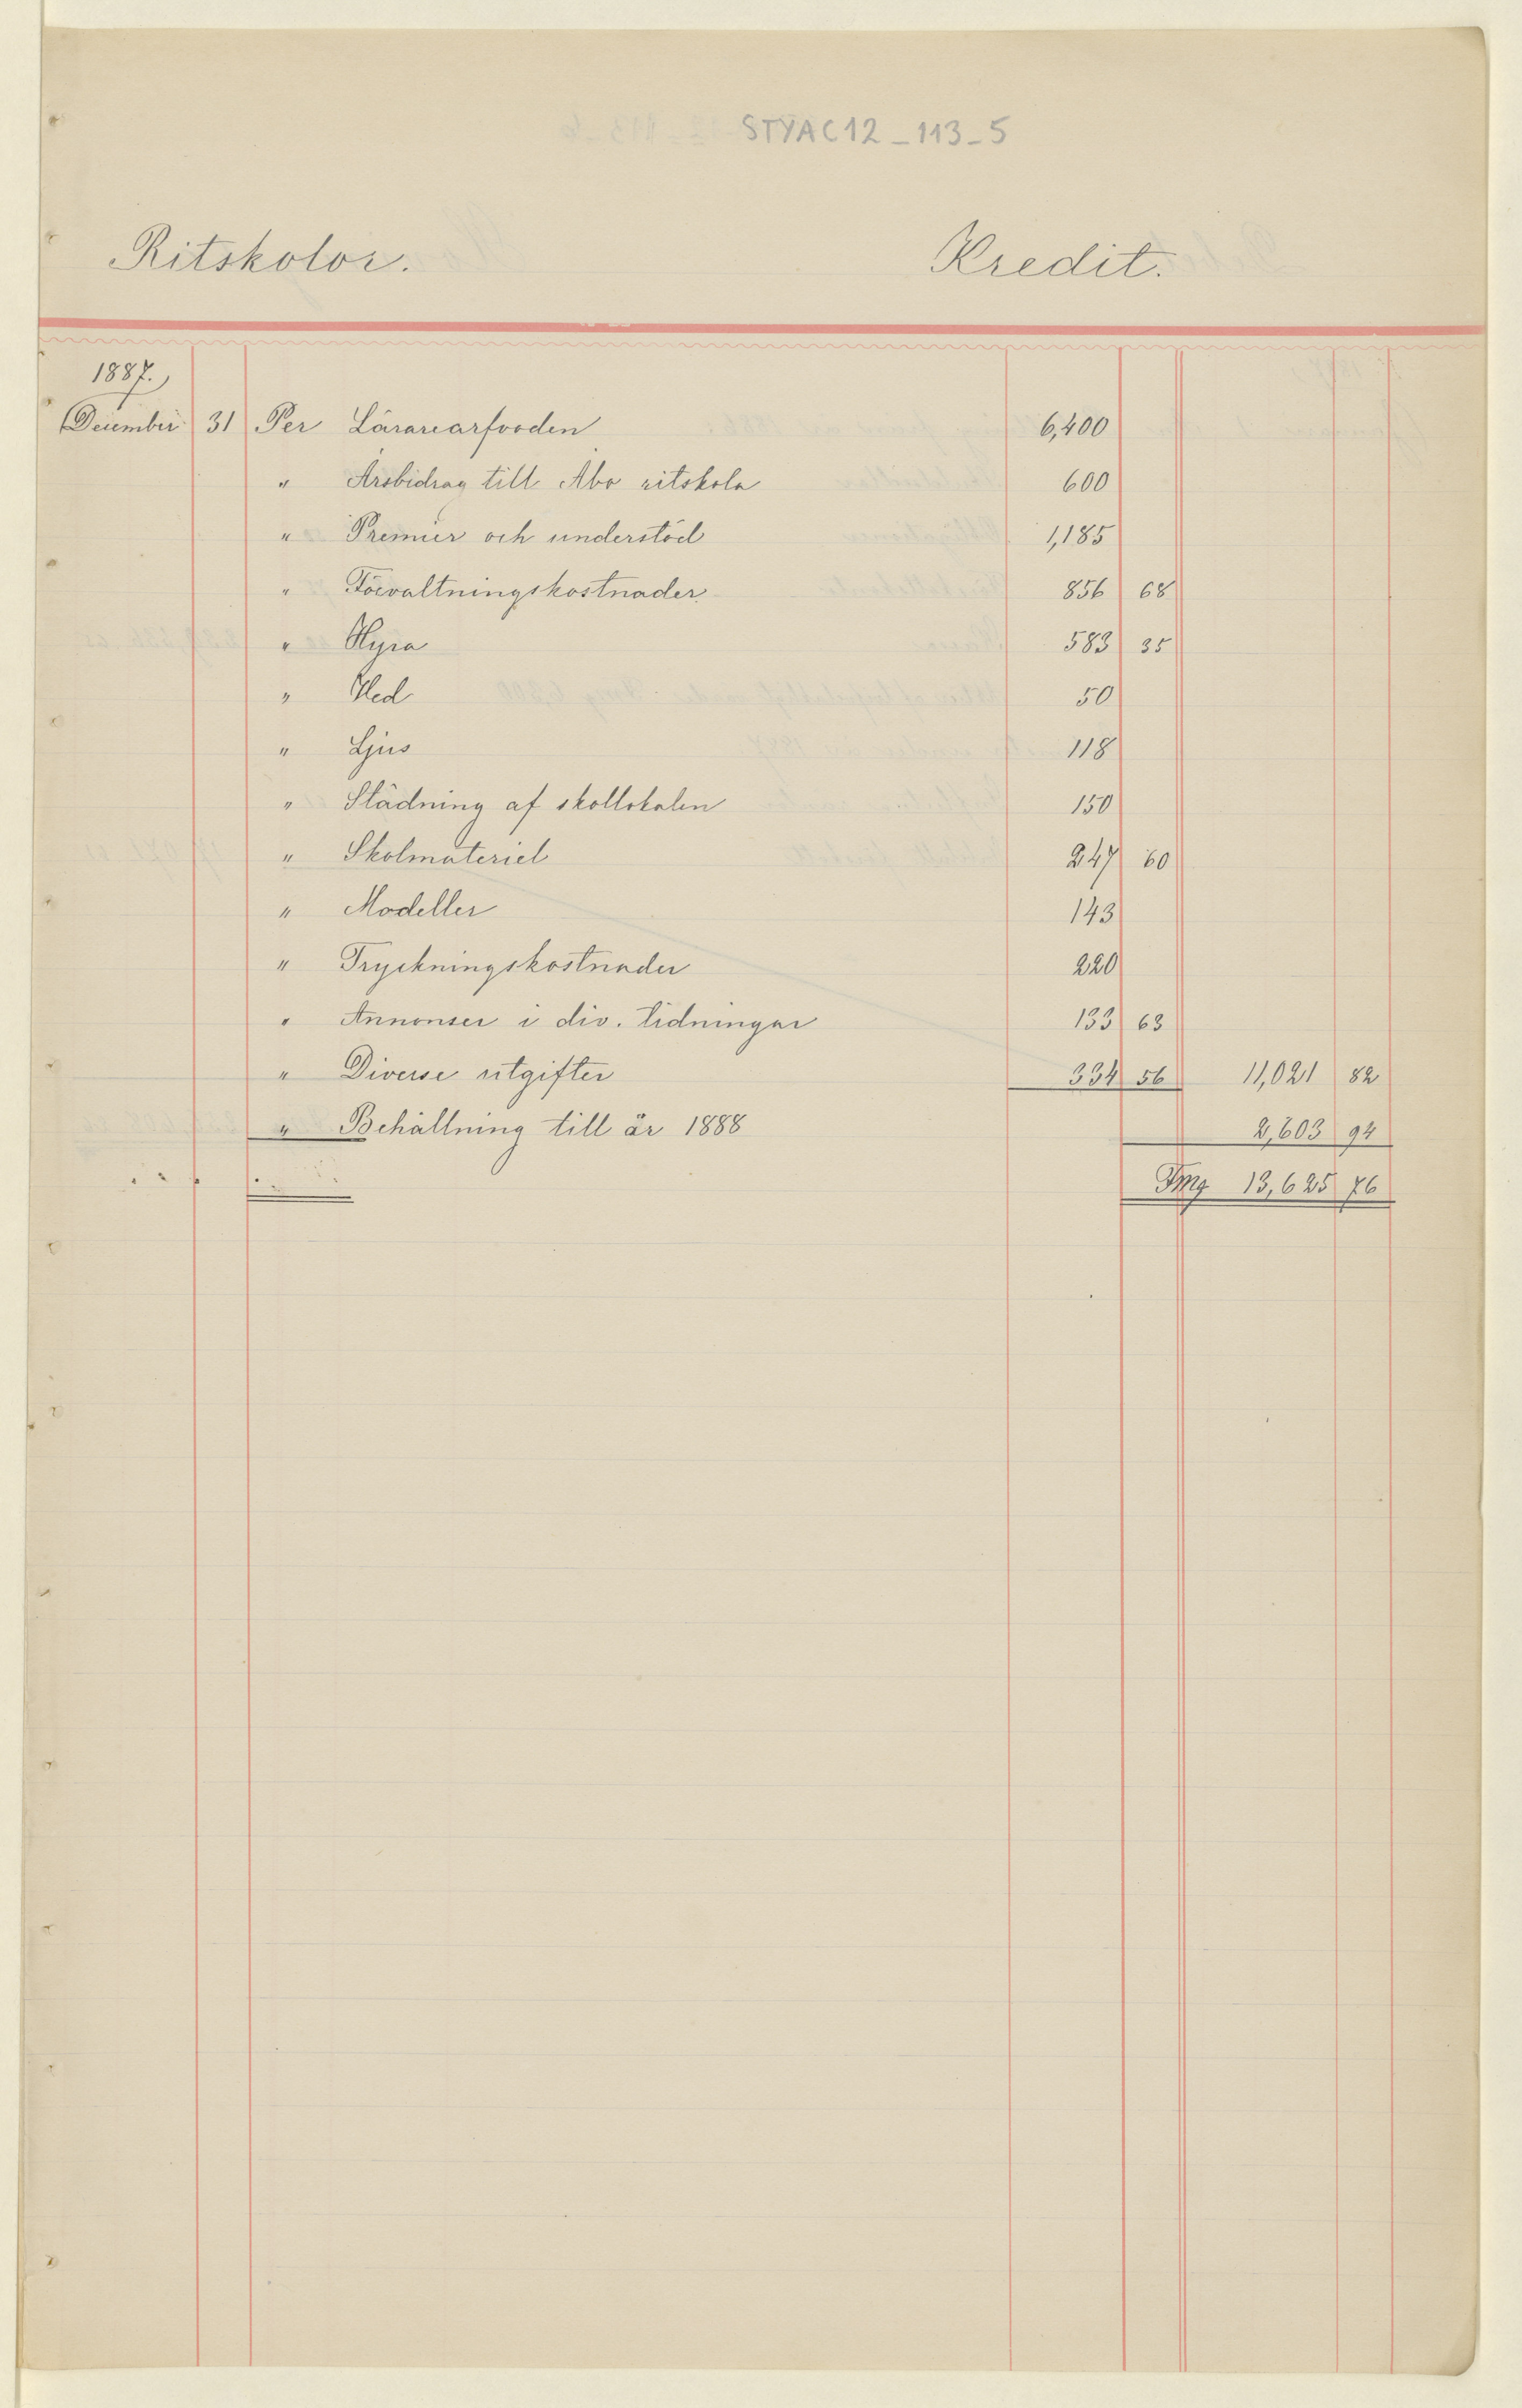 STYAC12_113_5
Ritskolor. Kredit.
1887.
December 31 Per Lärarearfvoden 6,400
" Årsbidrag till Åbo ritskola 600
" Premier och understöd 1,185
" Förvaltningskostnader 856 68
" Hyra 583 35
" Ved 50
" Ljus 118
" Städning af skollokalen 150
" Skolmateriel 247 60
" Modeller 143
" Tryckningskostnader 220
" Annonser i div. tidningar 133 63
" Diverse utgifter 334 56 11,021 82
" Behållning till år 1888 2,603 94
Fmg 13,625 76